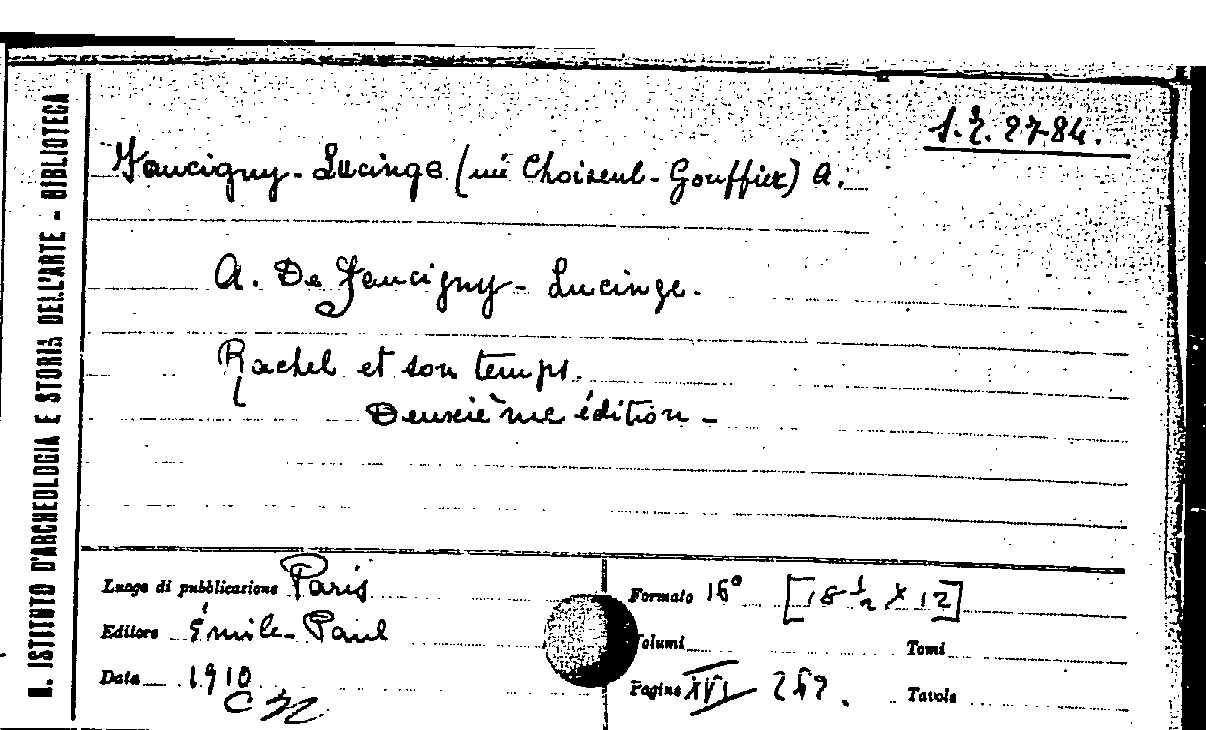 R. ISTITUTO D'ARCHEOLOGIA E STORIA DELL'ARTE - BIBLIOTECA
Faucigny-Lucinge (né Choiseul-Gouffier) A.
A. De Faucigny-Lucinge.
Rachel et son temps.
Deuxième édition -
Luogo di pubblicazione Paris
Editore Émile-Paul
Data 1910
Formato 16° [18 1/2 x 12]
Volumi Tomi
Pagine XVI Tavole